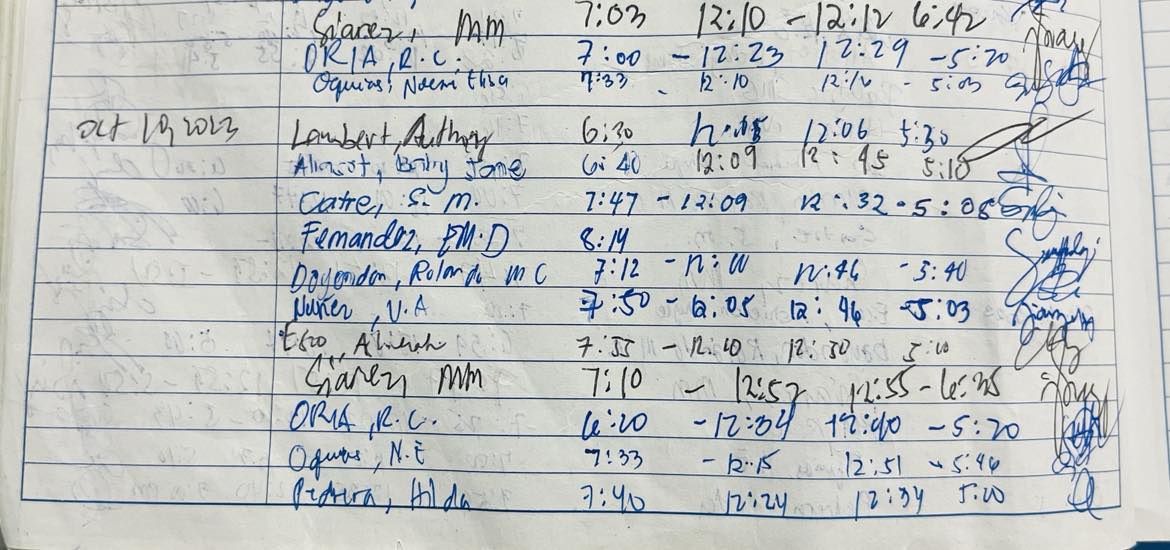 Siarez, MM 7:03 12:10 - 12:12 6:42
ORIA, R.C. 7:00 - 12:23 12:29 - 5:20
Oquias, Noemi thia 7:33 - 12:10 12:16 - 5:03
Oct 10, 2023 Lambert, Anthony 6:30 12:05 12:06 5:30
Jane 6:40 12:09 12:45 5:10
Catre, S. M. 7:47 - 12:09 12:32 - 5:08
Fernandez, EM.D 8:14
Dayondon, Rolando MC 7:12 - 12:11 12:46 - 5:40
Nuñez, V.A 7:50 - 12:05 12:46 - 5:03
7:55 - 12:10 12:30 5:10
Siarez, MM 7:10 - 12:52 12:55 - 6:35
ORIA, R.C. 6:20 - 12:34 12:40 - 5:20
Oquias, N.E 7:33 - 12:15 12:51 - 5:46
Hilda 7:40 12:24 12:34 5:10